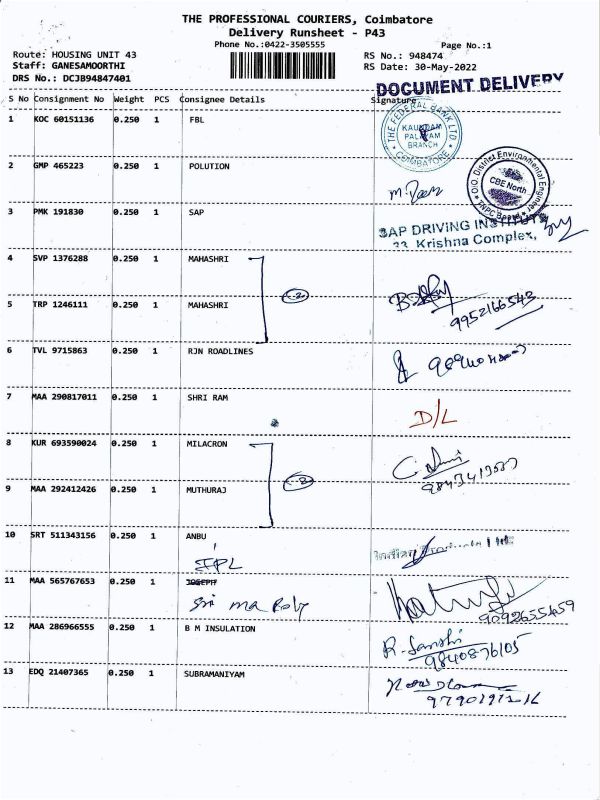 THE PROFESSIONAL COURIERS, Coimbatore
Delivery Runsheet - P43
Phone No.:0422-3505555
Page No.:1
Route: HOUSING UNIT 43
RS No.: 948474
Staff: GANESAMOORTHI
RS Date: 30-May-2022
DRS No.: DCJB94847401
DOCUMENT DELIVERY
S No Consignment No Weight PCS Consignee Details Signature
1 KOC 60151136 0.250 1 FBL
THE FEDERAL BANK LTD.
KAUNDAM
PALAYAM
BRANCH
COIMBATORE
2 GMP 465223 0.250 1 POLUTION
O/O. District Environmental Engineer
CBE North
TNPC Board
3 PMK 191830 0.250 1 SAP
SAP DRIVING INSTITUTE
33, Krishna Complex,
4 SVP 1376288 0.250 1 MAHASHRI
2
5 TRP 1246111 0.250 1 MAHASHRI
9952166543
6 TVL 9715863 0.250 1 RJN ROADLINES
7 MAA 290817011 0.250 1 SHRI RAM
D/L
8 KUR 693590024 0.250 1 MILACRON
2
9 MAA 292412426 0.250 1 MUTHURAJ
10 SRT 511343156 0.250 1 ANBU
IPL
11 MAA 565767653 0.250 1 JOSEPH
Sri ma
9092655459
12 MAA 286966555 0.250 1 B M INSULATION
9840876105
13 EDQ 21407365 0.250 1 SUBRAMANIYAM